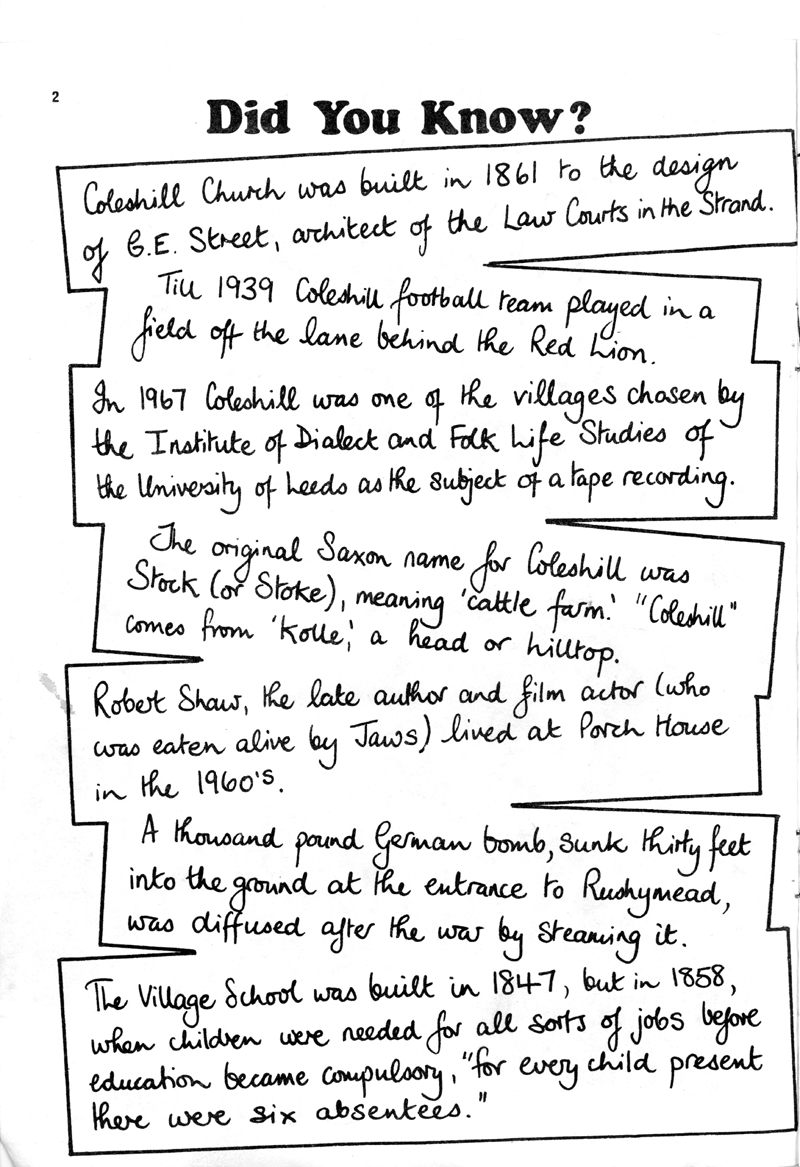 2
Did You Know?
Coleshill Church was built in 1861 to the design
of G.E. Street, architect of the Law Courts in the Strand.
Till 1939 Coleshill football team played in a
field off the lane behind the Red Lion.
In 1967 Coleshill was one of the villages chosen by
the Institute of Dialect and Folk Life Studies of
the University of Leeds as the subject of a tape recording.
The original Saxon name for Coleshill was
Stock (or Stoke), meaning 'cattle farm.' "Coleshill"
comes from 'Kolle,' a head or hilltop.
Robert Shaw, the late author and film actor (who
was eaten alive by Jaws) lived at Porch House
in the 1960's.
A thousand pound German bomb, sunk thirty feet
into the ground at the entrance to Rushymead,
was diffused after the war by steaming it.
The Village School was built in 1847, but in 1858,
when children were needed for all sorts of jobs before
education became compulsory, "for every child present
there were six absentees."